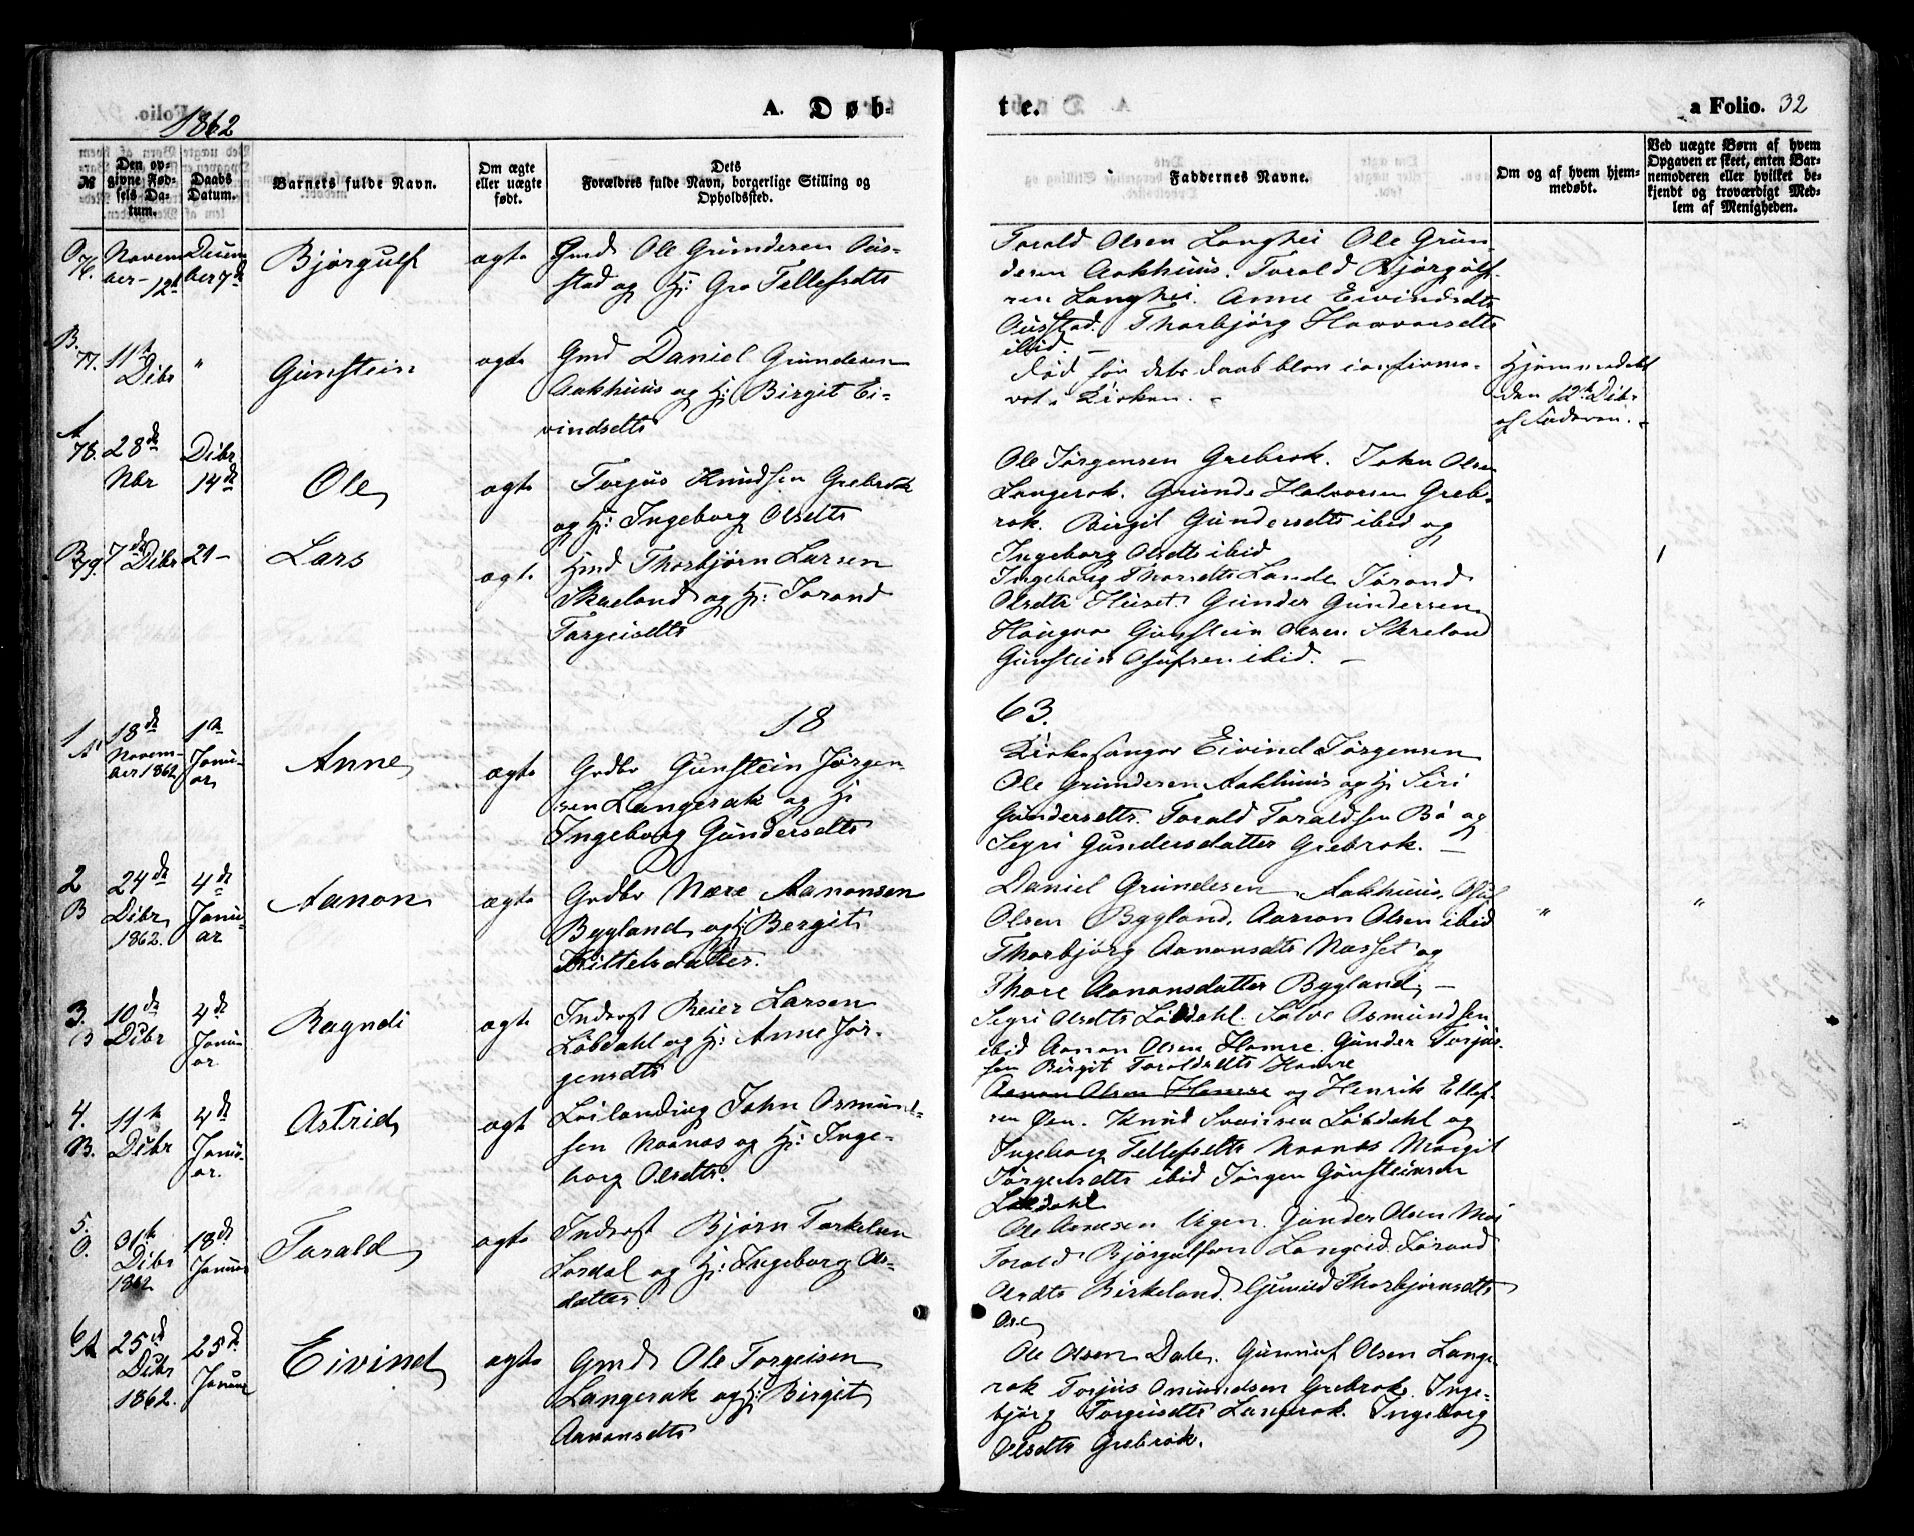 1862
A. Døb-
te.
a Folio. 32
№
Den opgivne Fødsels Datum.
Daabs Datum.
Barnets fulde Navn.
Om ægte eller uægte født.
Dets Forældres fulde Navn, borgerlige Stilling og Opholdssted.
Faddernes Navne.
Om og af hvem hjemmedøbt.
Ved uægte Børn af hvem Opgaven er skeet, enten Barnemoderen eller hvilket bekjendt og troværdigt Medlem af Menigheden.
76. Novem
ber 12te
Decem
ber 7de
Bjørgulf
ægte
Gmd Ole Gundersen Aus-
stad og Hu Gro Tellefsdts
Torald Olsen Langhei Ole Grun-
desen Aakhuus. Torald Bjørgulf-
sen Langhei. Anne Eivindsdts
Ausstad. Thorbjørg Haavorsdts
ibid. —
B. 77. 11te
Dcbr
"
Gunstein
ægte
Gmd Daniel Gundersen
Aakhuus og Hu Birgit Ei-
vindsdtts
død før dets daab blev confirme-
ret i Kirken. -
Hjemmedøbt
den 12te Dcb.
af Faderen. -
A 78. 28de
Nbr
Dcbr
14de
Ole
ægte
Torjus Knudsen Grebrok
og Hu: Ingeborg Olsdtts
Ole Jørgensen Grebrok. John Olsen
Langerak. Grunde Halvorsen Greb-
rok. Birgit Gundersdtts ibid og
Ingeborg Olsdtts ibid
B 79. 7de Dcbr
21 —
Lars
ægte
Hmd Thorbjørn Larsen
Skreland og Hu: Jorand
Torgeisdtts
Ingeborg Thorsdtts Lande Jorand
Olsdtts Huset. Gunder Gundersen
Haugaa Gunstein Olsen Skreland
Gunstein Olufsen ibid. —
18
63.
1 A. 18de
Novem-
ber 1862
1te
Janu-
ar
Anne
ægte
Grdbr Gunstein Jørgen-
sen Langerak og Hu
Ingeborg Gundersdtts
Kirkesanger Eivind Jørgensen
Ole Grundesen Aakhuus og Hu Siri
Gundersdtts. Torald Toraldsen Bø og
Segri Gundersdatter Grebrok. —
2 B 24de
Dcbr
1862.
4de
Janu-
ar
Aanon
ægte
Grdbr Nære Aanonsen
Bygland og Hu Bergit
Kittelsdatter.
Daniel Grundesen Aakhuus, Oluf
Olsen Bygland, Aanon Olsen ibid
Thorbjørg Aanonsdtts Næsset og
Thore Aanonsdatter Bygland. —
"
"
3. B 10de
Dcbr
4de
Janu
ar
Ragndi
ægte
Inderst Reier Larsen
Løbdahl og Hu: Anne Jør-
gensdts
Segri Olsdts Løbdahl. Salve Osmundsen
ibid Aanon Olsen Homre. Gunder Torjus-
sen Birgit Toraldsdts Homre
4. B. 11te
Dcbr
4de
Janu-
ar.
Astrid
ægt
Leilending John Osmund-
sen Noanos og Hu: Inge-
borg Olsdts.
Aanon Olsen Homre og Henrik Ellef-
sen Øen. Knud Svensen Løbdahl og
Ingeborg Tellefsdts Noanos Margit
Jørgensdts ibid Jørgen Gunsteinsen
Løbdahl
5. O. 31te
Dcbr
1862
18de
Januar
Torald
ægte
Inderst Bjørn Torkelsen
Sordal og Hu: Ingeborg As-
datter.
Ole Aanesen Vigen. Gunder Olsen Moi
Torald Bjørgulfsen Langeid Jorand
Olsdts Birkeland. Gunild Thorbjørnsdts
Ose
6 A 25de
Dcbr
1862.
25de
Januar
Eivind
ægte
Gmd Ole Torgeisen
Langerak og Hu: Birgit
Aanonsdts
Ole Olsen Dale. Gunnuf Olsen Lange-
rak Torjus Omundsen Grebrok. Inge-
bjørg Torgeisdts Langerak. Ingeborg
Olsdts Grebrok.